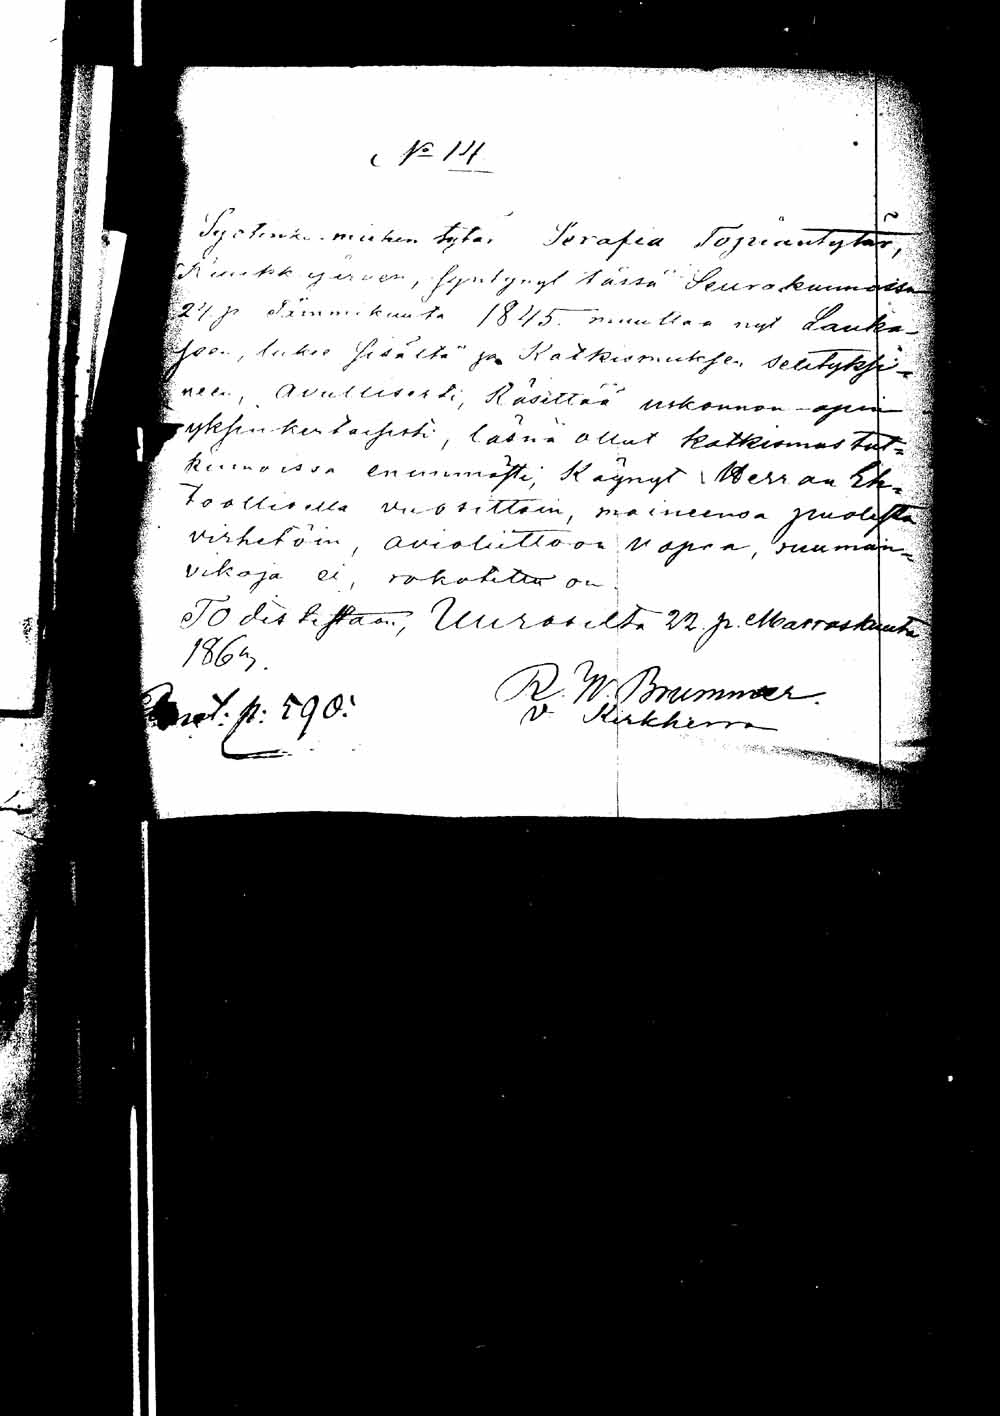 № 14
miehen tytär Serafia Topiaantytär,
syntynyt tässä Seurakunnassa
24 p Tammikuuta 1845. muuttaa nyt Lauka-
seen, lukee sisältä ja Katkismuksen selityksi=
neen, avullisesti, käsittää uskonnon-opin
yksinkertaisesti, läsnä ollut katkismus tut=
kinnoissa enimmästi, Käynyt Herran Eh=
toollisella vuosittain, maineensa puolesta
virhetöin, avioliittoon vapaa, ruumiin=
vikoja ei, rokotettu on.
Todistetaan, Uuraselta 22. p. Marraskuuta
186
p: 590:
R. W. Brummer.
v Kirkherra